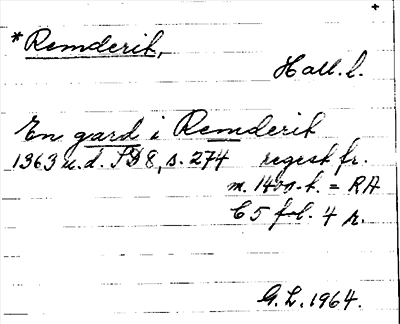 +
*Remderik,
Hall. l.
En gard i Remderik
1363 u.d. SD 8, s. 274 regest fr.
m. 1400-t. = RA
C 5 fol. 4 r.
G. L. 1964.